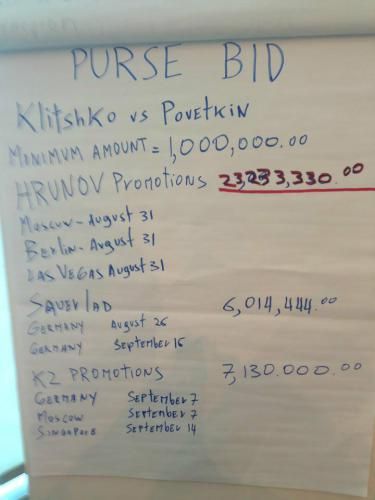 PURSE BID
Klitshko vs Povetkin
MINIMUM AMOUNT = 1,000,000.00
HRUNOV Promotions 23,233,330.00
Moscow - August 31
Berlin - August 31
LAS VEGAS August 31
SAUERLAD 6,014,444.00
GERMANY August 26
GERMANY September 16
K2 PROMOTIONS 7,130.000.00
GERMANY September 7
Moscow September 7
SINGAPORE September 14